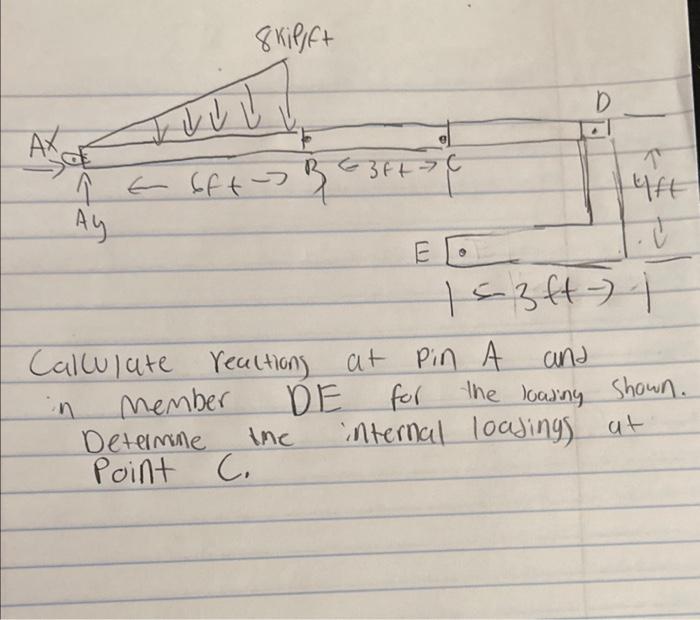 8Kip/ft
D
Ax
← 6ft → B ← 3ft → C
4ft
Ay
E
← 3ft →
Calculate reactions at Pin A and
in member DE for the loading shown.
Determine the internal loadings at
Point C.